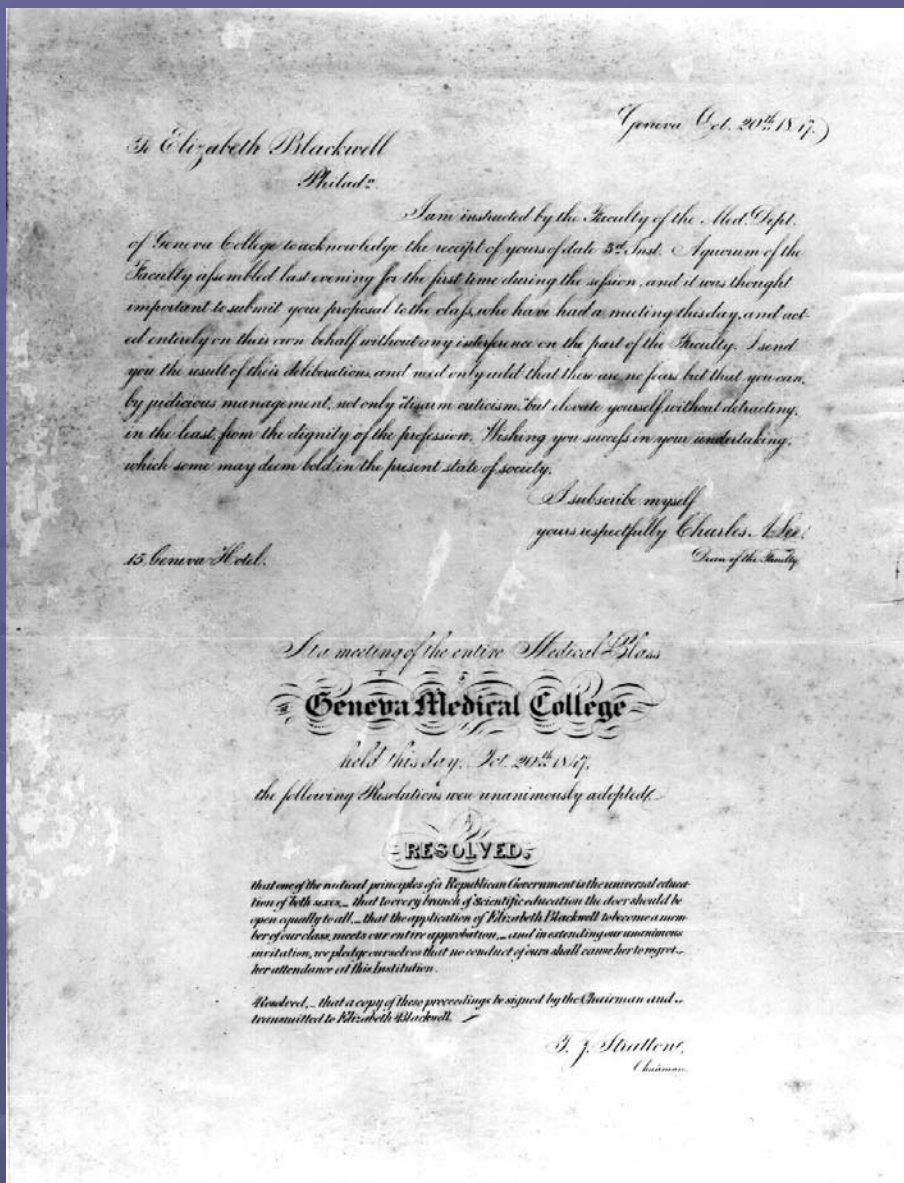 Geneva Oct. 20th 1847.
To Elizabeth Blackwell
Philada.
I am instructed by the Faculty of the Med. Dept.
of Geneva College to acknowledge the receipt of yours of date 3d Inst. A quorum of the
Faculty assembled last evening for the first time during the session, and it was thought
important to submit your proposal to the class, who have had a meeting this day, and act-
ed entirely on their own behalf without any interference on the part of the Faculty. I send
you the result of their deliberations, and need only add that there are no fears but that you can,
by judicious management, not only "disarm criticism," but elevate yourself without detracting,
in the least, from the dignity of the profession. Wishing you success in your undertaking,
which some may deem bold in the present state of society.
I subscribe myself
yours respectfully Charles A. Lee.
Dean of the Faculty
15, Geneva Hotel.
At a meeting of the entire Medical Class
Geneva Medical College
held this day, Oct. 20th 1847,
the following Resolutions were unanimously adopted
RESOLVED,
that one of the radical principles of a Republican Government is the universal educa-
tion of both sexes, – that to every branch of Scientific education the door should be
open equally to all, – that the application of Elizabeth Blackwell to become a mem-
ber of our class, meets our entire approbation, – and in extending our unanimous
invitation, we pledge ourselves that no conduct of ours shall cause her to regret –
her attendance at this Institution.
Resolved, – that a copy of these proceedings be signed by the Chairman and –
transmitted to Elizabeth Blackwell.
T. J. Stratton,
Chairman